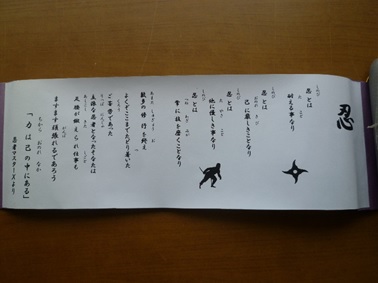 忍
忍とは
耐える事なり
忍とは
己に厳しきことなり
忍とは
他に優しき事なり
忍とは
常に技を磨くことなり
数多の修行を終え
よくぞここまでたどり着いた
ご苦労であった
立派な忍者となったそなたは
足腰が鍛えられ仕事も
ますます頑張れるであろう
「力は己の中にある」
忍者マスターXより